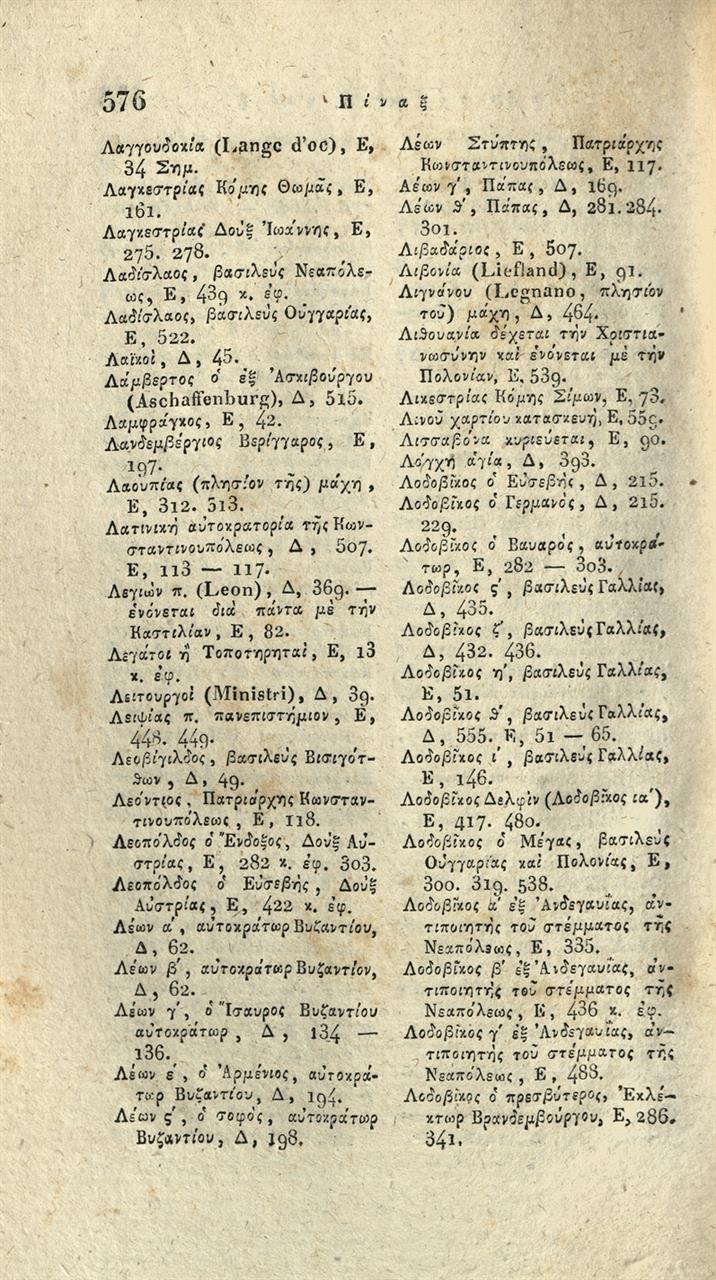 576 Πίναξ
Λαγγουδοκία (Lange d'oc), Ε,
34 Σημ.
Λαγκεστρίας Κόμης Θωμᾶς, Ε,
161.
Λαγκεστρίας Δοὺξ Ἰωάννης, Ε,
275. 278.
Λαδίσλαος, βασιλεὺς Νεαπόλε-
ως, Ε, 439 κ. ἑφ.
Λαδίσλαος, βασιλεὺς Οὐγγαρίας,
Ε, 522.
Λαϊκοὶ, Δ, 45.
Λάμβερτος ὁ ἐξ Ἀσκιβούργου
(Aschaffenburg), Δ, 515.
Λαμφράγκος, Ε, 42.
Λανδεμβέργιος Βερίγγαρος, Ε,
197.
Λαουπίας (πλησίον τῆς) μάχη,
Ε, 312. 513.
Λατινικὴ αὐτοκρατορία τῆς Κων-
σταντινουπόλεως, Δ, 507.
Ε, 113 — 117.
Λεγιὼν π. (Leon), Δ, 369. —
ἑνόνεται διὰ πάντα μὲ τὴν
Καστιλίαν, Ε, 82.
Λεγάτοι ἢ Τοποτηρηταὶ, Ε, 13
κ. ἑφ.
Λειτουργοὶ (Ministri), Δ, 39.
Λειψίας π. πανεπιστήμιον, Ε,
448. 449.
Λεοβίγιλδος, βασιλεὺς Βισιγότ-
θων, Δ, 49.
Λεόντιος, Πατριάρχης Κωνσταν-
τινουπόλεως, Ε, 118.
Λεοπόλδος ὁ Ἔνδοξος, Δοὺξ Αὐ-
στρίας, Ε, 282 κ. ἑφ. 303.
Λεοπόλδος ὁ Εὐσεβὴς, Δοὺξ
Αὐστρίας, Ε, 422 κ. ἑφ.
Λέων ά, αὐτοκράτωρ Βυζαντίου,
Δ, 62.
Λέων β΄, αὐτοκράτωρ Βυζαντίον,
Δ, 62.
Λέων γ΄, ὁ Ἴσαυρος Βυζαντίου
αὐτοκράτωρ, Δ, 134 —
136.
Λέων ε΄, ὁ Ἀρμένιος, αὐτοκρά-
τωρ Βυζαντίου, Δ, 194.
Λέων ς΄, ὁ σοφὸς, αὐτοκράτωρ
Βυζαντίου, Δ, 198.
Λέων Στύπτης, Πατριάρχης
Κωνσταντινουπόλεως, Ε, 117.
Λέων γ΄, Πάπας, Δ, 169.
Λέων θ΄, Πάπας, Δ, 281. 284.
301.
Λιβαδάριος, Ε, 507.
Λιβονία (Liefland), Ε, 91.
Λιγνάνου (Legnano, πλησίον
τοῦ) μάχη, Δ, 464.
Λιθουανία δέχεται τὴν Χριστια-
νωσύνην καὶ ἑνόνεται μὲ τὴν
Πολονίαν, Ε, 539.
Λικεστρίας Κόμης Σίμων, Ε, 73.
Λινοῦ χαρτίου κατασκευὴ, Ε,
Λισσαβόνα κυριεύεται, Ε, 90.
Λόγχη ἁγία, Δ, 393.
Λοδοβῖκος ὁ Εὐσεβὴς, Δ, 215.
Λοδοβῖκος ὁ Γερμανὸς, Δ, 215.
229.
Λοδοβῖκος ὁ Βαυαρὸς, αὐτοκρά-
τωρ, Ε, 282 — 303.
Λοδοβῖκος ς΄, βασιλεὺς Γαλλίας,
Δ, 435.
Λοδοβῖκος ζ΄, βασιλεὺς Γαλλίας,
Δ, 432. 436.
Λοδοβῖκος η΄, βασιλεὺς Γαλλίας,
Ε, 51.
Λοδοβῖκος θ΄, βασιλεὺς Γαλλίας,
Δ, 555. Ε, 51 — 65.
Λοδοβῖκος ι΄, βασιλεὺς Γαλλίας,
Ε, 146.
Λοδοβῖκος Δελφὶν (Λοδοβῖκος ια΄),
Ε, 417. 480.
Λοδοβῖκος ὁ Μέγας, βασιλεὺς
Οὐγγαρίας καὶ Πολονίας, Ε,
300. 319. 538.
Λοδοβῖκος ά ἐξ Ἀνδεγαυΐας, ἀν-
τιποιητὴς τοῦ στέμματος τῆς
Νεαπόλεως, Ε, 335.
Λοδοβῖκος β΄ ἐξ Ἀνδεγαυΐας, ἀν-
τιποιητὴς τοῦ στέμματος τῆς
Νεαπόλεως, Ε, 436 κ. ἑφ.
Λοδοβῖκος γ΄ ἐξ Ἀνδεγαυΐας, ἀν-
τιποιητὴς τοῦ στέμματος τῆς
Νεαπόλεως, Ε, 488.
Λοδοβῖκος ὁ πρεσβύτερος, Ἐκλέ-
κτωρ Βρανδεμβούργου, Ε, 286.
341.